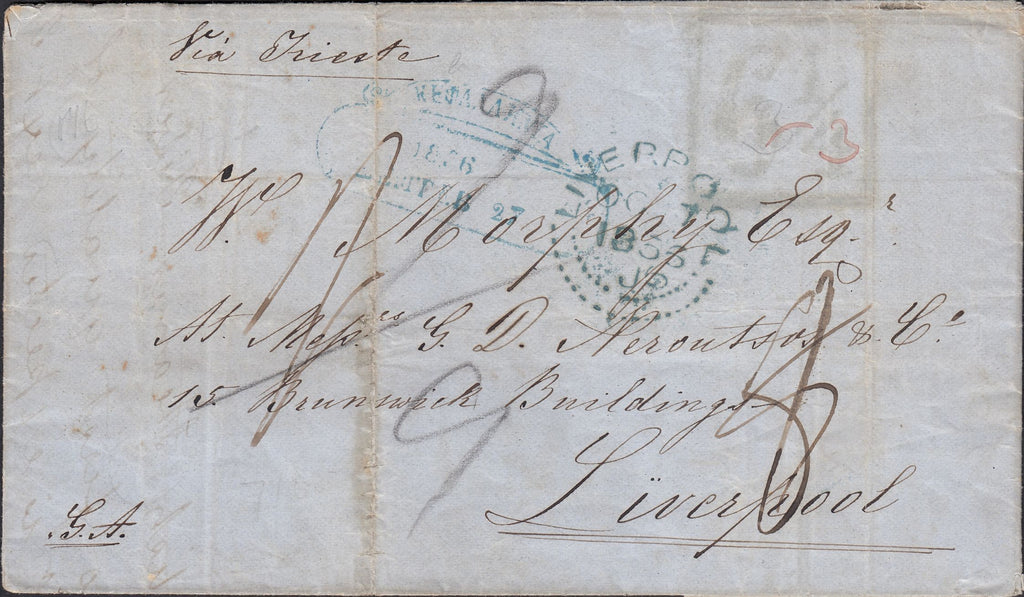 Via Trieste
ΚΕΦΑΛΛΗΝΙΑ
1856
27
LIVERPOOL
W. Morphy Esqr
At Messrs G. D. Neroutsos & Co
15. Brunswick Buildings
Liverpool
G.A.
3